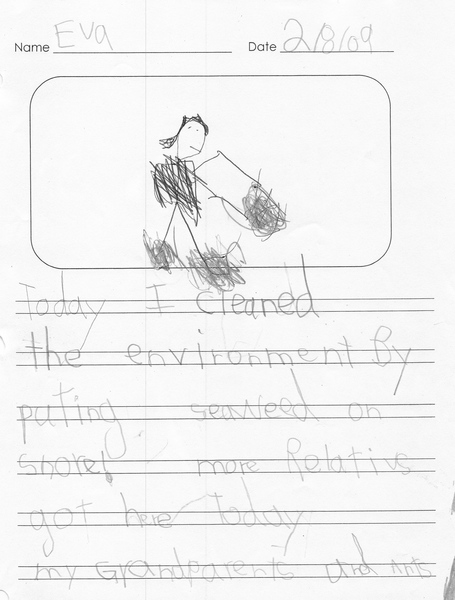 Name Eva Date 2/8/09
Today I cleaned
the environment By
puting seaweed on
shore! more Relativs
got here today
my Grandparents and Ants